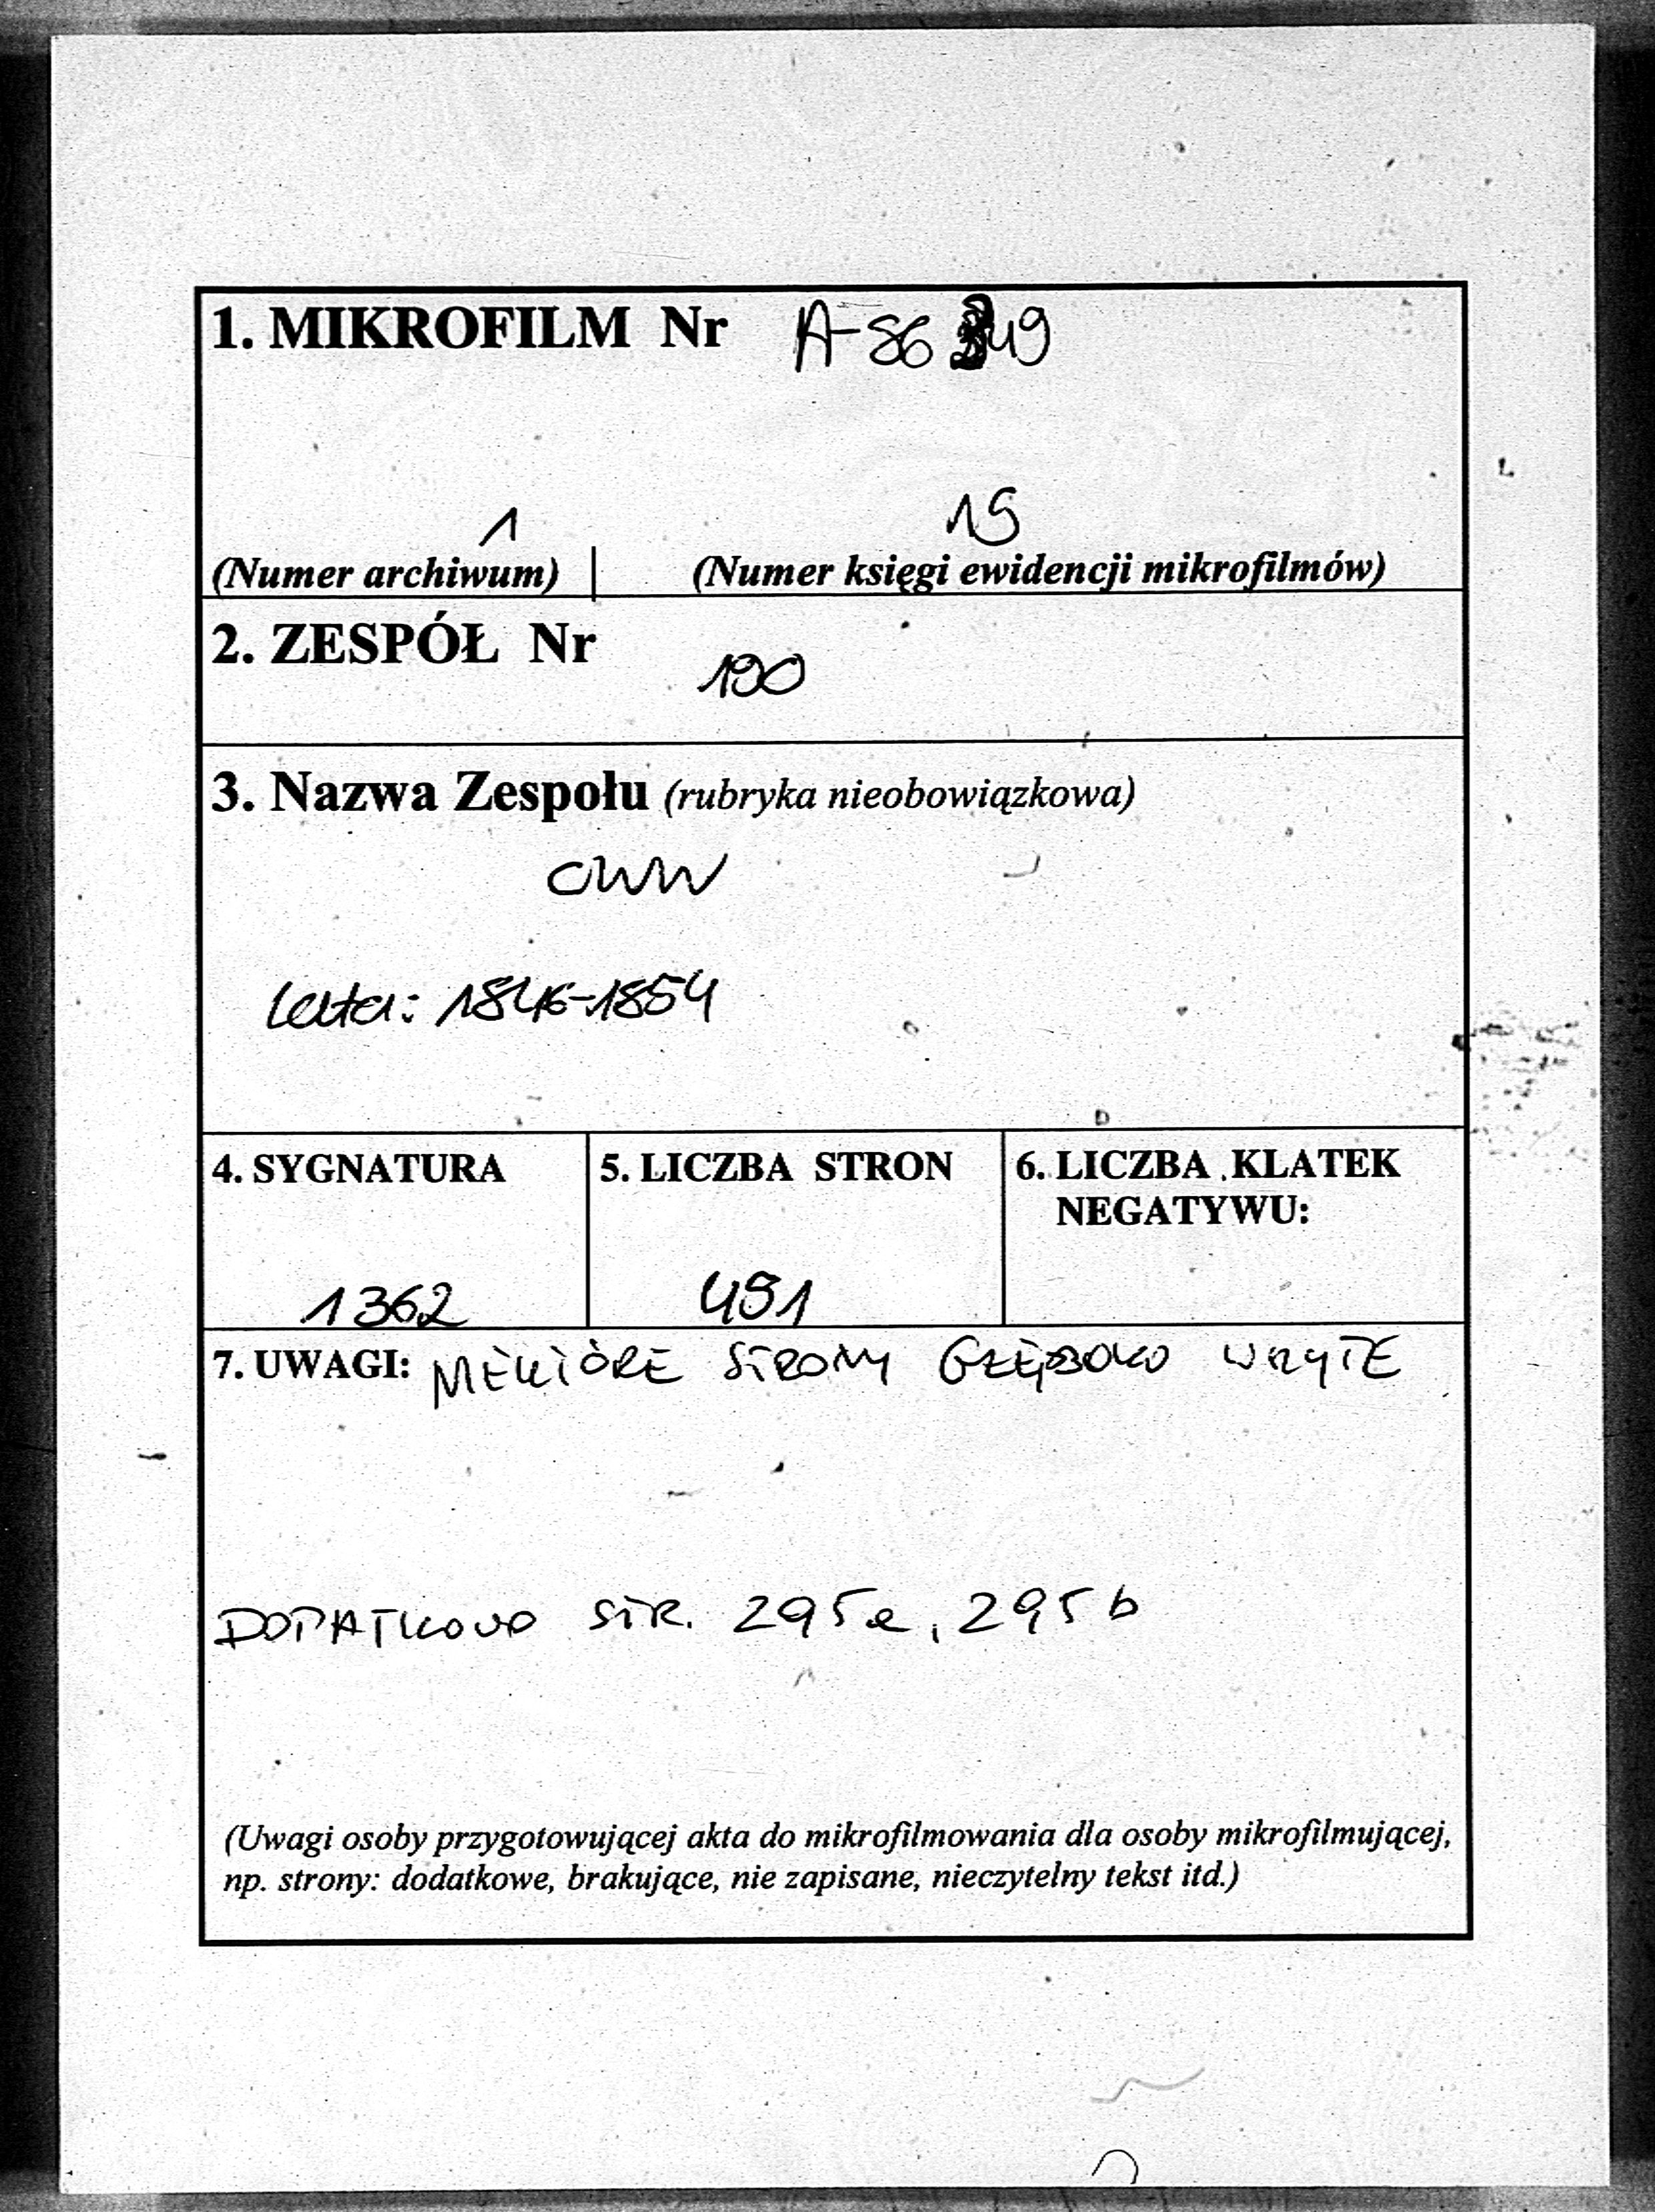 1. MIKROFILM Nr A-86 349
1 19
(Numer archiwum) | (Numer księgi ewidencji mikrofilmów)
2. ZESPÓŁ Nr
190
3. Nazwa Zespołu (rubryka nieobowiązkowa)
CWW
Lata: 1846-1854
4. SYGNATURA
1362
5. LICZBA STRON
491
6. LICZBA KLATEK
NEGATYWU:
7. UWAGI: NIEKTÓRE STRONY GŁĘBOKO WSZYTE
DODATKOWO STR. 295a, 295b
(Uwagi osoby przygotowującej akta do mikrofilmowania dla osoby mikrofilmującej,
np. strony: dodatkowe, brakujące, nie zapisane, nieczytelny tekst itd.)